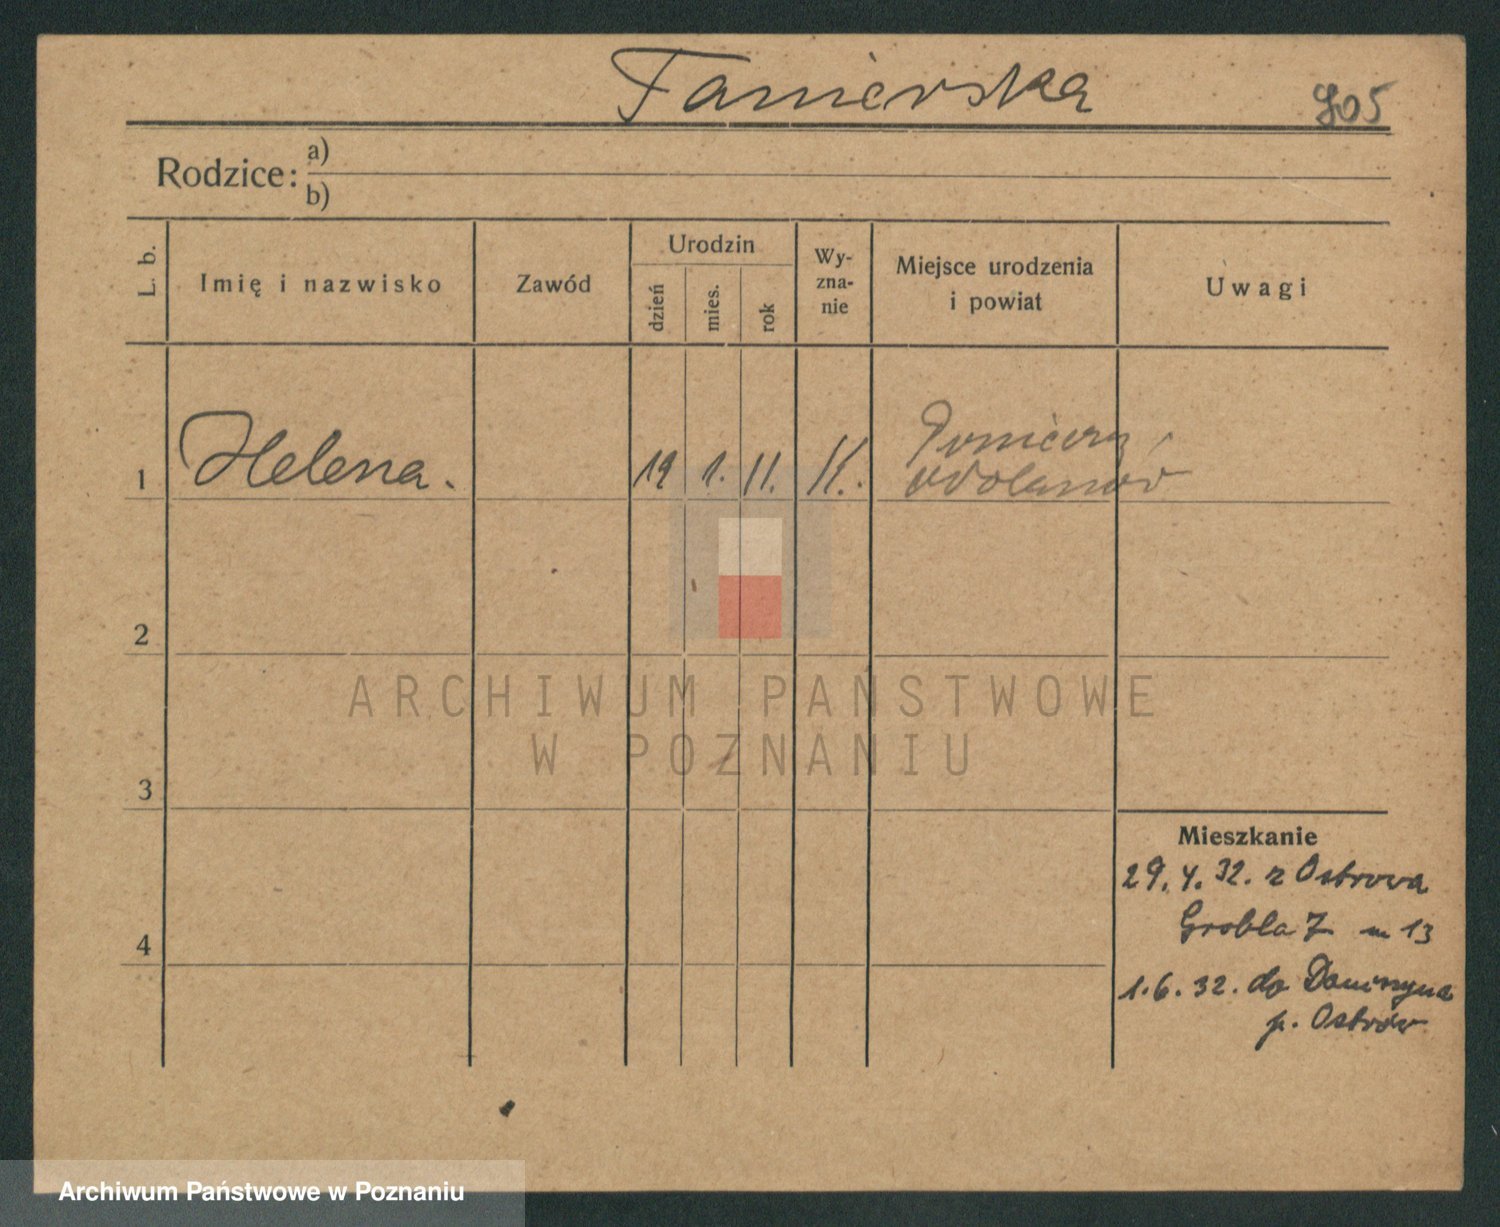 Tanierska 705
Rodzice: a)
b)
L. b.
Imię i nazwisko
Zawód
Urodzin
dzień
mies.
rok
Wy-
zna-
nie
Miejsce urodzenia
i powiat
Uwagi
1 Helena. 19 1. 11. K.
Odolanów
2
3
4
Mieszkanie
29. 4. 32. z Ostrowa
Grobla 7 m 13
1. 6. 32. do Daniszyna
p. Ostrów
ARCHIWUM PAŃSTWOWE
W POZNANIU
Archiwum Państwowe w Poznaniu